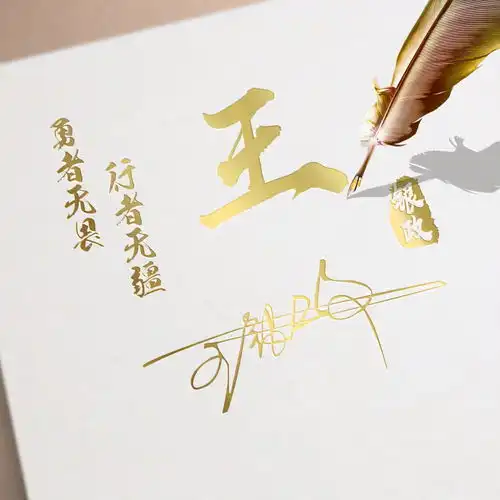 勇者无畏
行者无疆
王
政